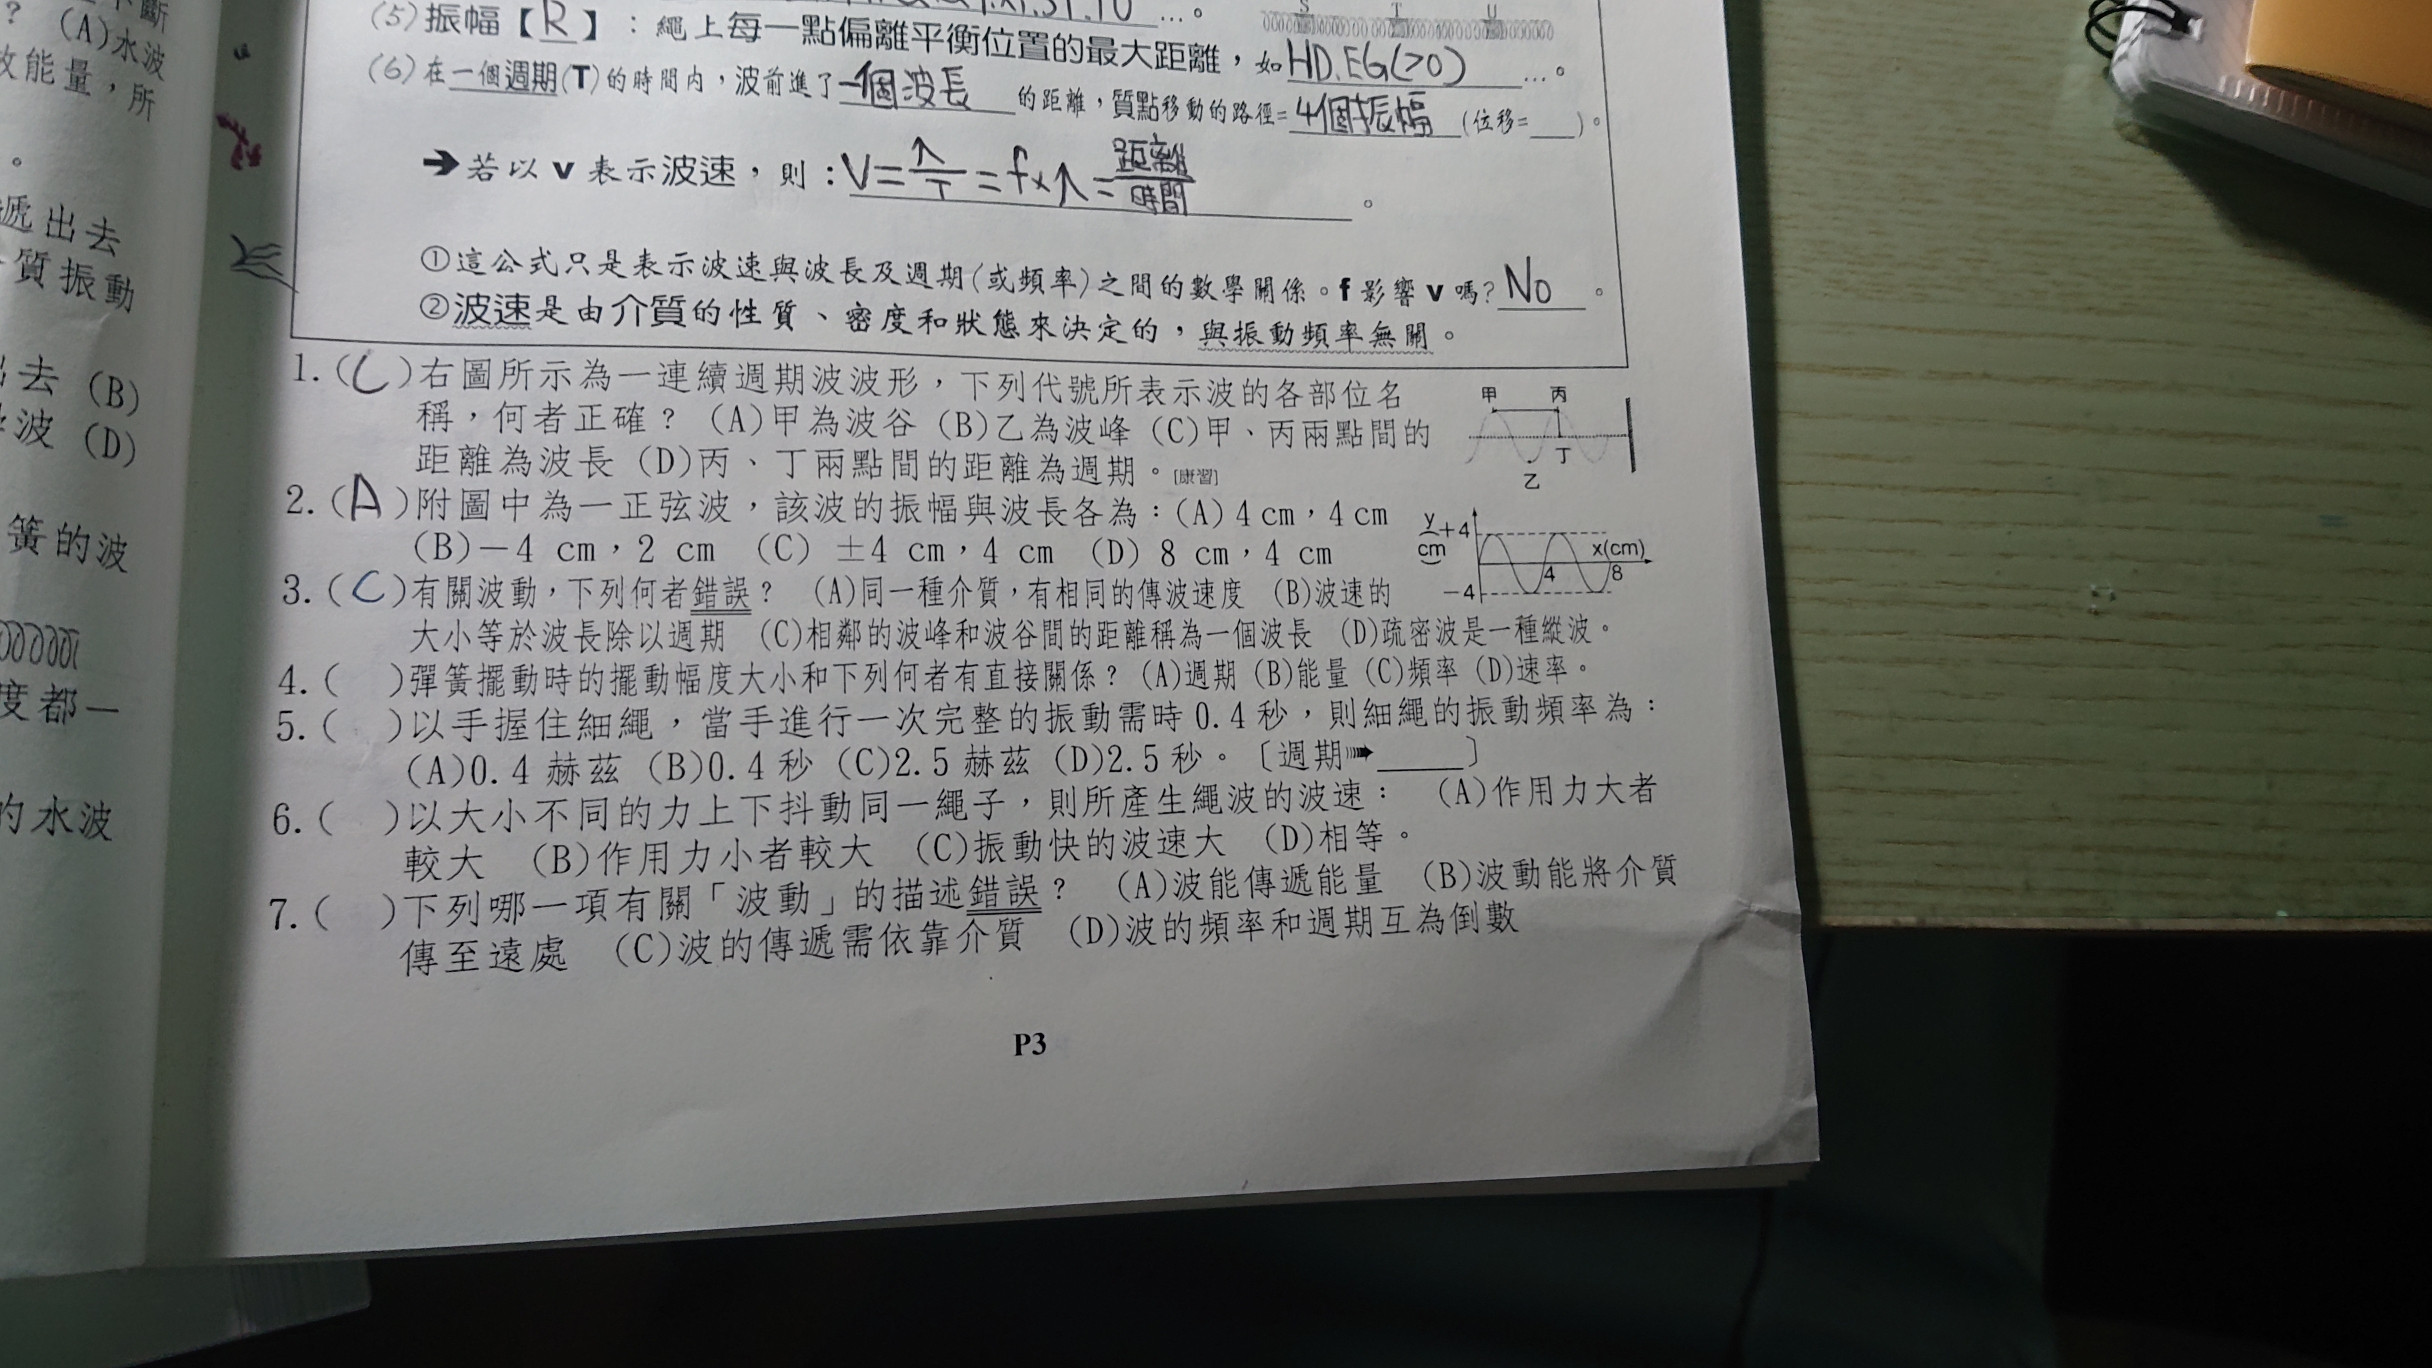 斷
? (A)水波
攵能量，所
。
遞出去
質振動
去 (B)
波 (D)
簧的波
度都一
的水波
(5)振幅【R】：繩上每一點偏離平衡位置的最大距離，如HD.EG(>0)…。
S T U
(6)在一個週期(T)的時間內，波前進了一個波長的距離，質點移動的路徑=4個振幅(位移=____)。
➔若以 v 表示波速，則：V=λ/T=f×λ=距離/時間。
①這公式只是表示波速與波長及週期(或頻率)之間的數學關係。f 影響 v 嗎?No。
②波速是由介質的性質、密度和狀態來決定的，與振動頻率無關。
1.(C)右圖所示為一連續週期波波形，下列代號所表示波的各部位名
稱，何者正確？ (A)甲為波谷 (B)乙為波峰 (C)甲、丙兩點間的
距離為波長 (D)丙、丁兩點間的距離為週期。[康習]
甲 丙
丁
乙
2.(A)附圖中為一正弦波，該波的振幅與波長各為：(A) 4 cm，4 cm
(B)－4 cm，2 cm (C) ±4 cm，4 cm (D) 8 cm，4 cm
y +4
(cm) x(cm)
4 8
－4
3.(C)有關波動，下列何者錯誤？ (A)同一種介質，有相同的傳波速度 (B)波速的
大小等於波長除以週期 (C)相鄰的波峰和波谷間的距離稱為一個波長 (D)疏密波是一種縱波。
4.( )彈簧擺動時的擺動幅度大小和下列何者有直接關係？(A)週期 (B)能量 (C)頻率 (D)速率。
5.( )以手握住細繩，當手進行一次完整的振動需時 0.4 秒，則細繩的振動頻率為：
(A)0.4 赫茲 (B)0.4 秒 (C)2.5 赫茲 (D)2.5 秒。〔週期➠____〕
6.( )以大小不同的力上下抖動同一繩子，則所產生繩波的波速： (A)作用力大者
較大 (B)作用力小者較大 (C)振動快的波速大 (D)相等。
7.( )下列哪一項有關「波動」的描述錯誤？ (A)波能傳遞能量 (B)波動能將介質
傳至遠處 (C)波的傳遞需依靠介質 (D)波的頻率和週期互為倒數
P3